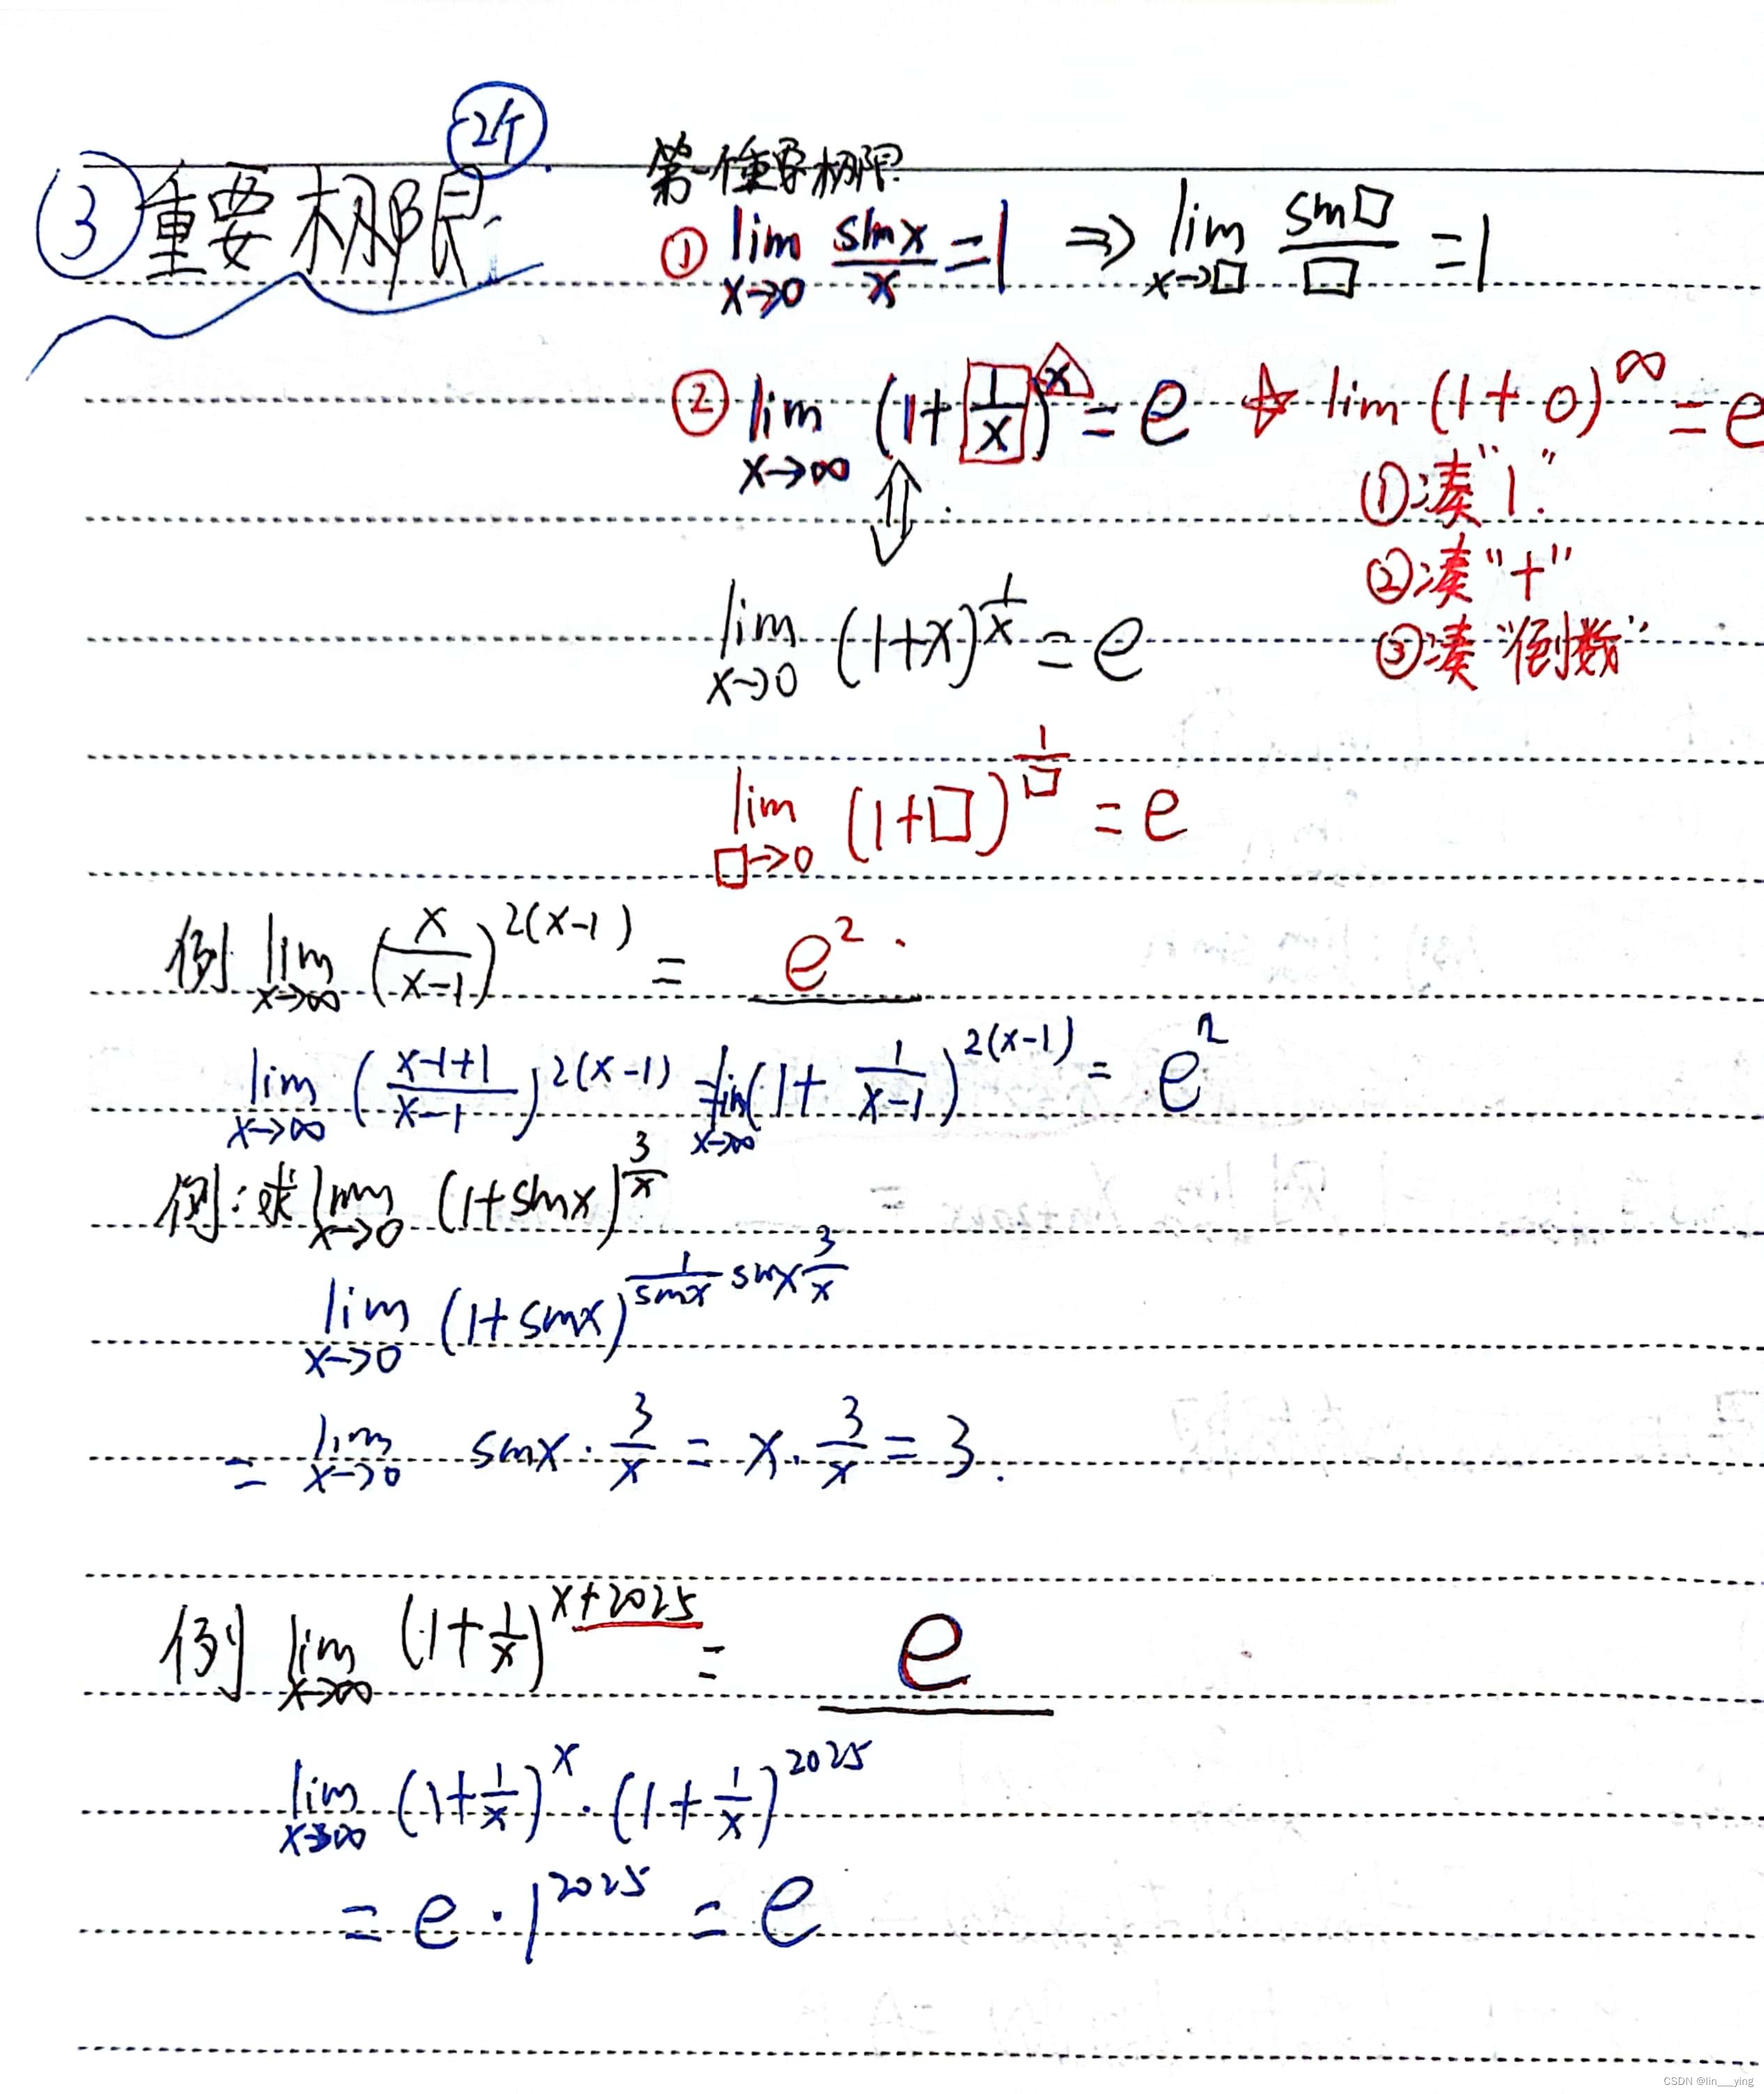 ③重要极限 2个.
第一重要极限
① lim x→0 sinx/x = 1 ⇒ lim x→□ sin□/□ = 1
② lim x→∞ (1+1/x)^x = e ☆ lim (1+0)^∞ = e
⇕
①凑"1."
②凑"+"
lim x→0 (1+x)^(1/x) = e
③凑"倒数"
lim □→0 (1+□)^(1/□) = e
例 lim x→∞ (x/(x-1))^(2(x-1)) = e².
lim x→∞ ((x-1+1)/(x-1))^(2(x-1)) = lim x→∞ (1+1/(x-1))^(2(x-1)) = e²
例:求 lim x→0 (1+sinx)^(3/x)
lim x→0 (1+sinx)^(1/sinx sinx 3/x)
= lim x→0 sinx·3/x = x·3/x = 3.
例 lim x→∞ (1+1/x)^(x+2025) = e
lim x→∞ (1+1/x)^x·(1+1/x)^2025
= e·1^2025 = e
CSDN @lin___ying